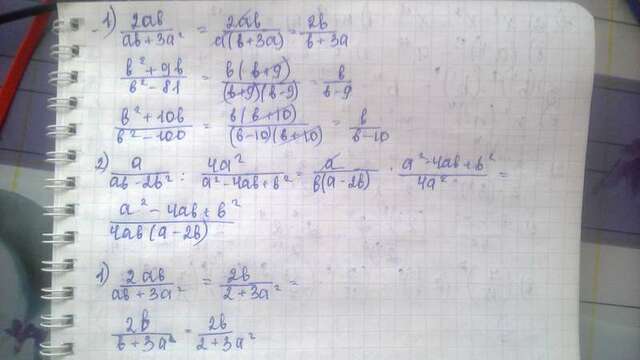 1) 2ab/(ab+3a²) = 2ab/(a(b+3a)) = 2b/(b+3a)
(b²+9b)/(b²-81) = b(b+9)/((b+9)(b-9)) = b/(b-9)
(b²+10b)/(b²-100) = b(b+10)/((b-10)(b+10)) = b/(b-10)
2) a/(ab-2b²) : 4a²/(a²-4ab+b²) = a/(b(a-2b)) · (a²-4ab+b²)/4a² =
(a²-4ab+b²)/(4ab(a-2b))
1) 2ab/(ab+3a²) = 2b/(2+3a²) =
2b/(b+3a²) = 2b/(2+3a²)